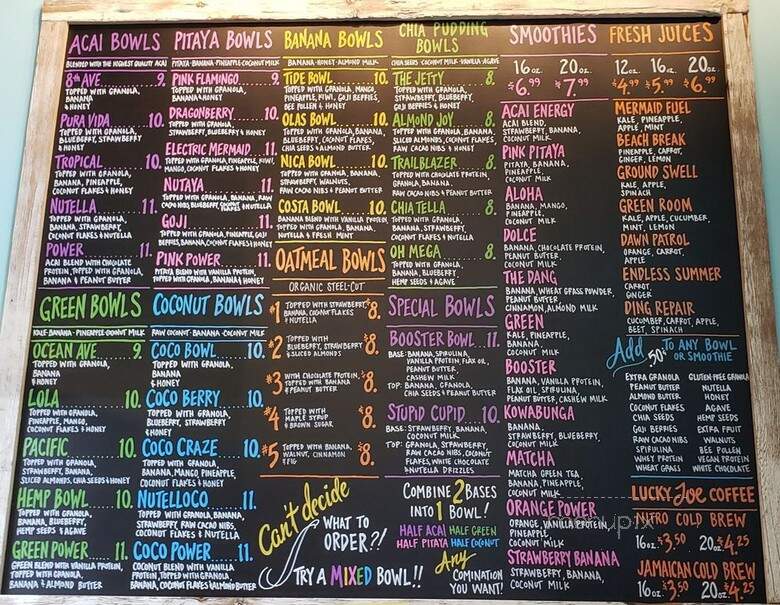 ACAI BOWLS
BLENDED WITH THE HIGHEST QUALITY ACAI
8th AVE 9.
TOPPED WITH GRANOLA,
BANANA
& HONEY
PURA VIDA 10.
TOPPED WITH GRANOLA,
BANANA, STRAWBERRY
& HONEY
TROPICAL 10.
TOPPED WITH GRANOLA,
BANANA, PINEAPPLE,
COCONUT FLAKES & HONEY
NUTELLA 11.
TOPPED WITH GRANOLA,
BANANA, STRAWBERRY,
COCONUT FLAKES & NUTELLA
POWER 11.
ACAI BLEND WITH CHOCOLATE
PROTEIN, TOPPED WITH GRANOLA,
BANANA & PEANUT BUTTER
PITAYA BOWLS
PITAYA·BANANA·PINEAPPLE·COCONUT MILK
PINK FLAMINGO 9.
TOPPED WITH GRANOLA,
BANANA & HONEY
DRAGONBERRY 10.
TOPPED WITH GRANOLA,
STRAWBERRY, BLUEBERRY & HONEY
ELECTRIC MERMAID 11.
TOPPED WITH GRANOLA, PINEAPPLE, KIWI,
MANGO, COCONUT FLAKES & HONEY
NUTAYA 11.
TOPPED WITH GRANOLA, BANANA, RAW
CACAO NIBS, BLUEBERRY, COCONUT FLAKES & NUTELLA
GOJI 11.
TOPPED WITH GRANOLA, PINEAPPLE, GOJI
BERRIES, BANANA, COCONUT FLAKES & HONEY
PINK POWER 11.
PITAYA BLEND WITH VANILLA PROTEIN,
TOPPED WITH GRANOLA, BANANA,
COCONUT FLAKES & PEANUT BUTTER
BANANA BOWLS
BANANA·HONEY·ALMOND MILK
TIDE BOWL 10.
TOPPED WITH GRANOLA, MANGO,
PINEAPPLE, KIWI, GOJI BERRIES,
BEE POLLEN & HONEY
OLAS BOWL 10.
TOPPED WITH GRANOLA, BANANA,
BLUEBERRY, COCONUT FLAKES,
CHIA SEEDS & ALMOND BUTTER
NICA BOWL 10.
TOPPED WITH GRANOLA, BANANA,
STRAWBERRY, WALNUTS,
RAW CACAO NIBS & PEANUT BUTTER
COSTA BOWL 10.
BANANA BLEND WITH VANILLA PROTEIN
TOPPED WITH GRANOLA, BANANA,
NUTELLA & FRESH MINT
OATMEAL BOWLS
ORGANIC STEEL-CUT
#1 TOPPED WITH STRAWBERRY, BANANA, COCONUT FLAKES & NUTELLA $8.
#2 TOPPED WITH BLUEBERRY, STRAWBERRY & SLICED ALMONDS $8.
#3 WITH CHOCOLATE PROTEIN, TOPPED WITH BANANA & PEANUT BUTTER $8.
#4 TOPPED WITH MAPLE SYRUP & BROWN SUGAR $8.
#5 TOPPED WITH BANANA, WALNUT, CINNAMON & FIG $8.
CHIA PUDDING
BOWLS
CHIA SEEDS·COCONUT MILK·VANILLA·AGAVE
THE JETTY 8.
TOPPED WITH GRANOLA,
STRAWBERRY, BLUEBERRY,
GOJI BERRIES & HONEY
ALMOND JOY 8.
TOPPED WITH GRANOLA, BANANA,
SLICED ALMONDS, COCONUT FLAKES,
RAW CACAO NIBS & HONEY
TRAILBLAZER 8.
TOPPED WITH CHOCOLATE PROTEIN,
GRANOLA, BANANA,
RAW CACAO NIBS & PEANUT BUTTER
CHIATELLA 8.
TOPPED WITH GRANOLA,
BANANA, STRAWBERRY,
COCONUT FLAKES & NUTELLA
OH MEGA 8.
TOPPED WITH GRANOLA,
BANANA, BLUEBERRY,
HEMP SEEDS & AGAVE
SPECIAL BOWLS
BOOSTER BOWL 11.
BASE: BANANA, SPIRULINA,
VANILLA PROTEIN, FLAX OIL,
PEANUT BUTTER,
CASHEW MILK
TOP: BANANA, GRANOLA,
CHIA SEEDS & PEANUT BUTTER
STUPID CUPID 10.
BASE: STRAWBERRY, BANANA,
COCONUT MILK
TOP: GRANOLA, STRAWBERRY,
RAW CACAO NIBS, COCONUT
FLAKES, WHITE CHOCOLATE
& NUTELLA DRIZZLES
GREEN BOWLS
KALE·BANANA·PINEAPPLE·COCONUT MILK
OCEAN AVE 9.
TOPPED WITH GRANOLA,
BANANA
& HONEY
LOLA 10.
TOPPED WITH GRANOLA,
PINEAPPLE, MANGO,
COCONUT FLAKES & HONEY
PACIFIC 10.
TOPPED WITH GRANOLA,
STRAWBERRY, BANANA,
SLICED ALMONDS, CHIA SEEDS & HONEY
HEMP BOWL 10.
TOPPED WITH GRANOLA,
BANANA, BLUEBERRY,
HEMP SEEDS & AGAVE
GREEN POWER 11.
GREEN BLEND WITH VANILLA PROTEIN,
TOPPED WITH GRANOLA,
BANANA & ALMOND BUTTER
COCONUT BOWLS
RAW COCONUT·BANANA·COCONUT MILK
COCO BOWL 10.
TOPPED WITH GRANOLA,
BANANA
& HONEY
COCO BERRY 10.
TOPPED WITH GRANOLA,
BLUEBERRY, STRAWBERRY
& HONEY
COCO CRAZE 10.
TOPPED WITH GRANOLA,
BANANA, MANGO, PINEAPPLE,
COCONUT FLAKES & HONEY
NUTELLOCO 11.
TOPPED WITH GRANOLA, BANANA,
STRAWBERRY, RAW CACAO NIBS,
COCONUT FLAKES & NUTELLA
COCO POWER 11.
COCONUT BLEND WITH VANILLA
PROTEIN, TOPPED WITH GRANOLA,
BANANA, COCONUT FLAKES & ALMOND BUTTER
Can't decide
WHAT TO
ORDER?!
TRY A MIXED BOWL!!
COMBINE 2 BASES
INTO 1 BOWL!
HALF ACAI HALF GREEN
HALF PITAYA HALF COCONUT
Any
COMINATION
YOU WANT!
SMOOTHIES
16oz. 20oz.
$6.99 $7.99
ACAI ENERGY
ACAI BLEND,
STRAWBERRY, BANANA,
COCONUT MILK
PINK PITAYA
PITAYA, BANANA,
PINEAPPLE,
COCONUT MILK
ALOHA
BANANA, MANGO,
PINEAPPLE,
COCONUT MILK
DOLCE
BANANA, CHOCOLATE PROTEIN,
PEANUT BUTTER,
COCONUT MILK
THE DANG
BANANA, WHEAT GRASS POWDER,
PEANUT BUTTER,
CINNAMON, ALMOND MILK
GREEN
KALE, PINEAPPLE,
BANANA,
COCONUT MILK
BOOSTER
BANANA, VANILLA PROTEIN,
FLAX OIL, SPIRULINA,
PEANUT BUTTER, CASHEW MILK
KOWABUNGA
BANANA,
STRAWBERRY, BLUEBERRY,
COCONUT MILK
MATCHA
MATCHA GREEN TEA,
BANANA, PINEAPPLE,
COCONUT MILK
ORANGE POWER
ORANGE, VANILLA PROTEIN,
PINEAPPLE,
COCONUT MILK
STRAWBERRY BANANA
STRAWBERRY, BANANA,
COCONUT MILK
FRESH JUICES
12oz. 16oz. 20oz.
$4.99 $5.99 $6.99
MERMAID FUEL
KALE, PINEAPPLE,
APPLE, MINT
BEACH BREAK
PINEAPPLE, CARROT,
GINGER, LEMON
GROUND SWELL
KALE, APPLE,
SPINACH
GREEN ROOM
KALE, APPLE, CUCUMBER,
MINT, LEMON
DAWN PATROL
ORANGE, CARROT,
APPLE
ENDLESS SUMMER
CARROT,
GINGER
DING REPAIR
CUCUMBER, CARROT, APPLE,
BEET, SPINACH
Add 50¢ TO ANY BOWL
OR SMOOTHIE
EXTRA GRANOLA GLUTEN FREE GRANOLA
PEANUT BUTTER NUTELLA
ALMOND BUTTER HONEY
COCONUT FLAKES AGAVE
CHIA SEEDS HEMP SEEDS
GOJI BERRIES EXTRA FRUIT
RAW CACAO NIBS WALNUTS
SPIRULINA BEE POLLEN
WHEY PROTEIN VEGAN PROTEIN
WHEAT GRASS WHITE CHOCOLATE
LUCKY Joe COFFEE
NITRO COLD BREW
16oz $3.50 20oz $4.25
JAMAICAN COLD BREW
16oz $3.50 20oz $4.25